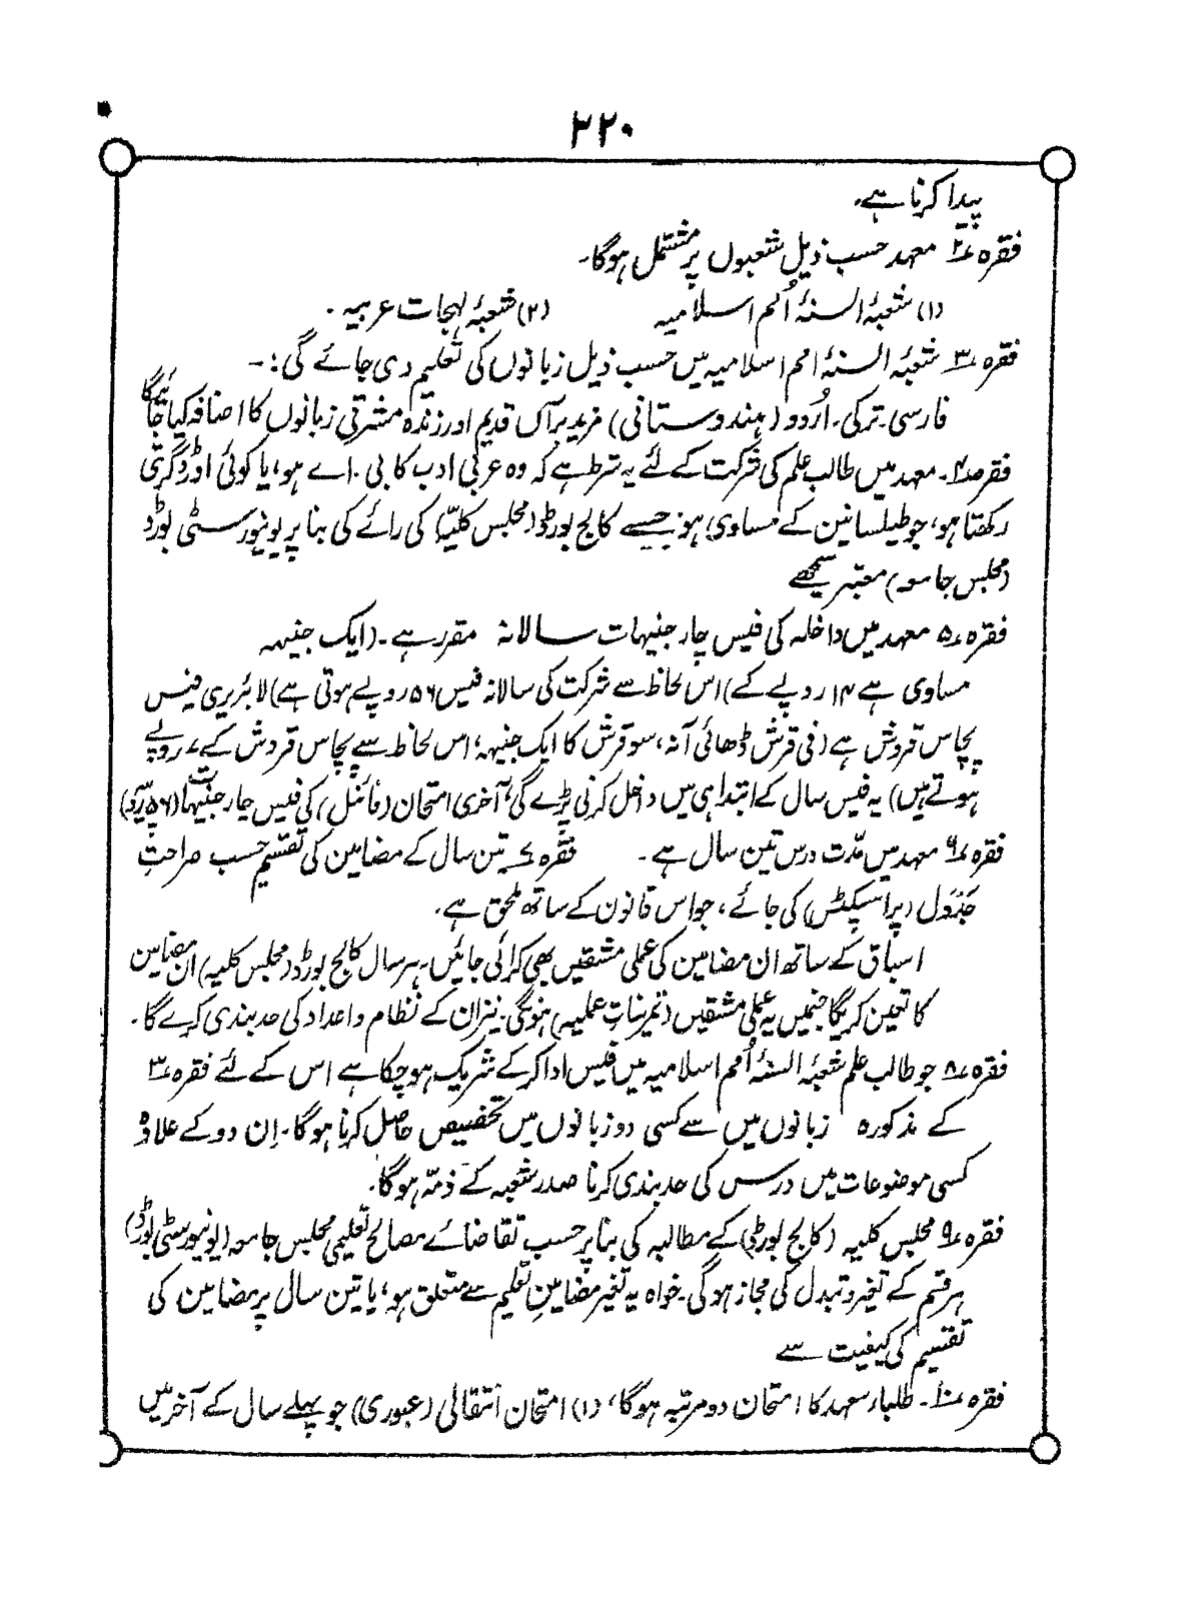 ۲۲۰
پیدا کرنا ہے۔
فقرہ ۲؎ معہد حسب ذیل شعبوں پر مشتمل ہوگا۔
(۱) شعبۂ السنۂ اُمم اسلامیہ (۲) شعبۂ لہجات عربیہ۔
فقرہ ۳؎ شعبۂ السنۂ امم اسلامیہ میں حسب ذیل زبانوں کی تعلیم دی جائے گی :۔
فارسی۔ ترکی۔ اُردو (ہندوستانی) مزید برآں قدیم اور زندہ مشرقی زبانوں کا اضافہ کیا جائیگا
فقرہ ۴؎۔ معہد میں طالب علم کی شرکت کے لئے یہ شرط ہے کہ وہ عربی ادب کا بی۔ اے ہو، یا کوئی اور ڈگری
رکھتا ہو، جو طیلسانین کے مساوی ہو، جسے کالج بورڈ (مجلس کلیّہ) کی رائے کی بنا پر یونیورسٹی بورڈ
(مجلس جامعہ) معتبر سمجھے
فقرہ ۵؎ معہد میں داخلہ کی فیس چار جنیہات سالانہ مقرر ہے۔ (ایک جنیہہ
مساوی ہے ۱۴ روپے کے) اس لحاظ سے شرکت کی سالانہ فیس ۵۶ روپے ہوتی ہے) لائبریری فیس
پچاس قروش ہے (فی قرش ڈھائی آنہ، سو قرش کا ایک جنیہہ، اس لحاظ سے پچاس قروش کے ۷ روپے
ہوتے ہیں) یہ فیس سال کے ابتدا ہی میں داخل کرنی پڑے گی، آخری امتحان (فائنل) کی فیس چار جنیہات (۵۶ روپے)
فقرہ ۶؎ معہد میں مدّت درس تین سال ہے۔ فقرہ ۷؎ تین سال کے مضامین کی تقسیم حسب صراحتِ
جَدْوَل (پراسپکٹس) کی جائے، جو اس قانون کے ساتھ ملحق ہے۔
اسباق کے ساتھ ان مضامین کی عملی مشقیں بھی کرائی جائیں۔ ہر سال کالج بورڈ (مجلس کلیہ) ان مضامین
کا تعین کریگا جنمیں یہ عملی مشقیں (تمرینات علمیہ) ہونگی۔ نیز ان کے نظام و اعداد کی حد بندی کرے گا۔
فقرہ ۸؎ جو طالب علم شعبۂ السنۂ اُمم اسلامیہ میں فیس ادا کر کے شریک ہو چکا ہے اس کے لئے فقرہ ۳؎
کے مذکورہ زبانوں میں سے کسی دو زبانوں میں تخصیص حاصل کرنا ہوگا۔ اِن دو کے علاوہ
کسی موضوعات میں درس کی حد بندی کرنا صدر شعبہ کے ذمّہ ہوگا۔
فقرہ ۹؎ مجلس کلیہ (کالج بورڈ) کے مطالبہ کی بنا پر حسب تقاضائے مصالح تعلیمی مجلس جامعہ (یونیورسٹی بورڈ)
ہر قسم کے تغیر و تبدل کی مجاز ہوگی۔ خواہ یہ تغیر مضامینِ تعلیم سے متعلق ہو، یا تین سال پر مضامین کی
تقسیم کی کیفیت سے
فقرہ ۱۰؎۔ طلباء معہد کا امتحان دو مرتبہ ہوگا، (۱) امتحان انتقالی (عبوری) جو پہلے سال کے آخر میں